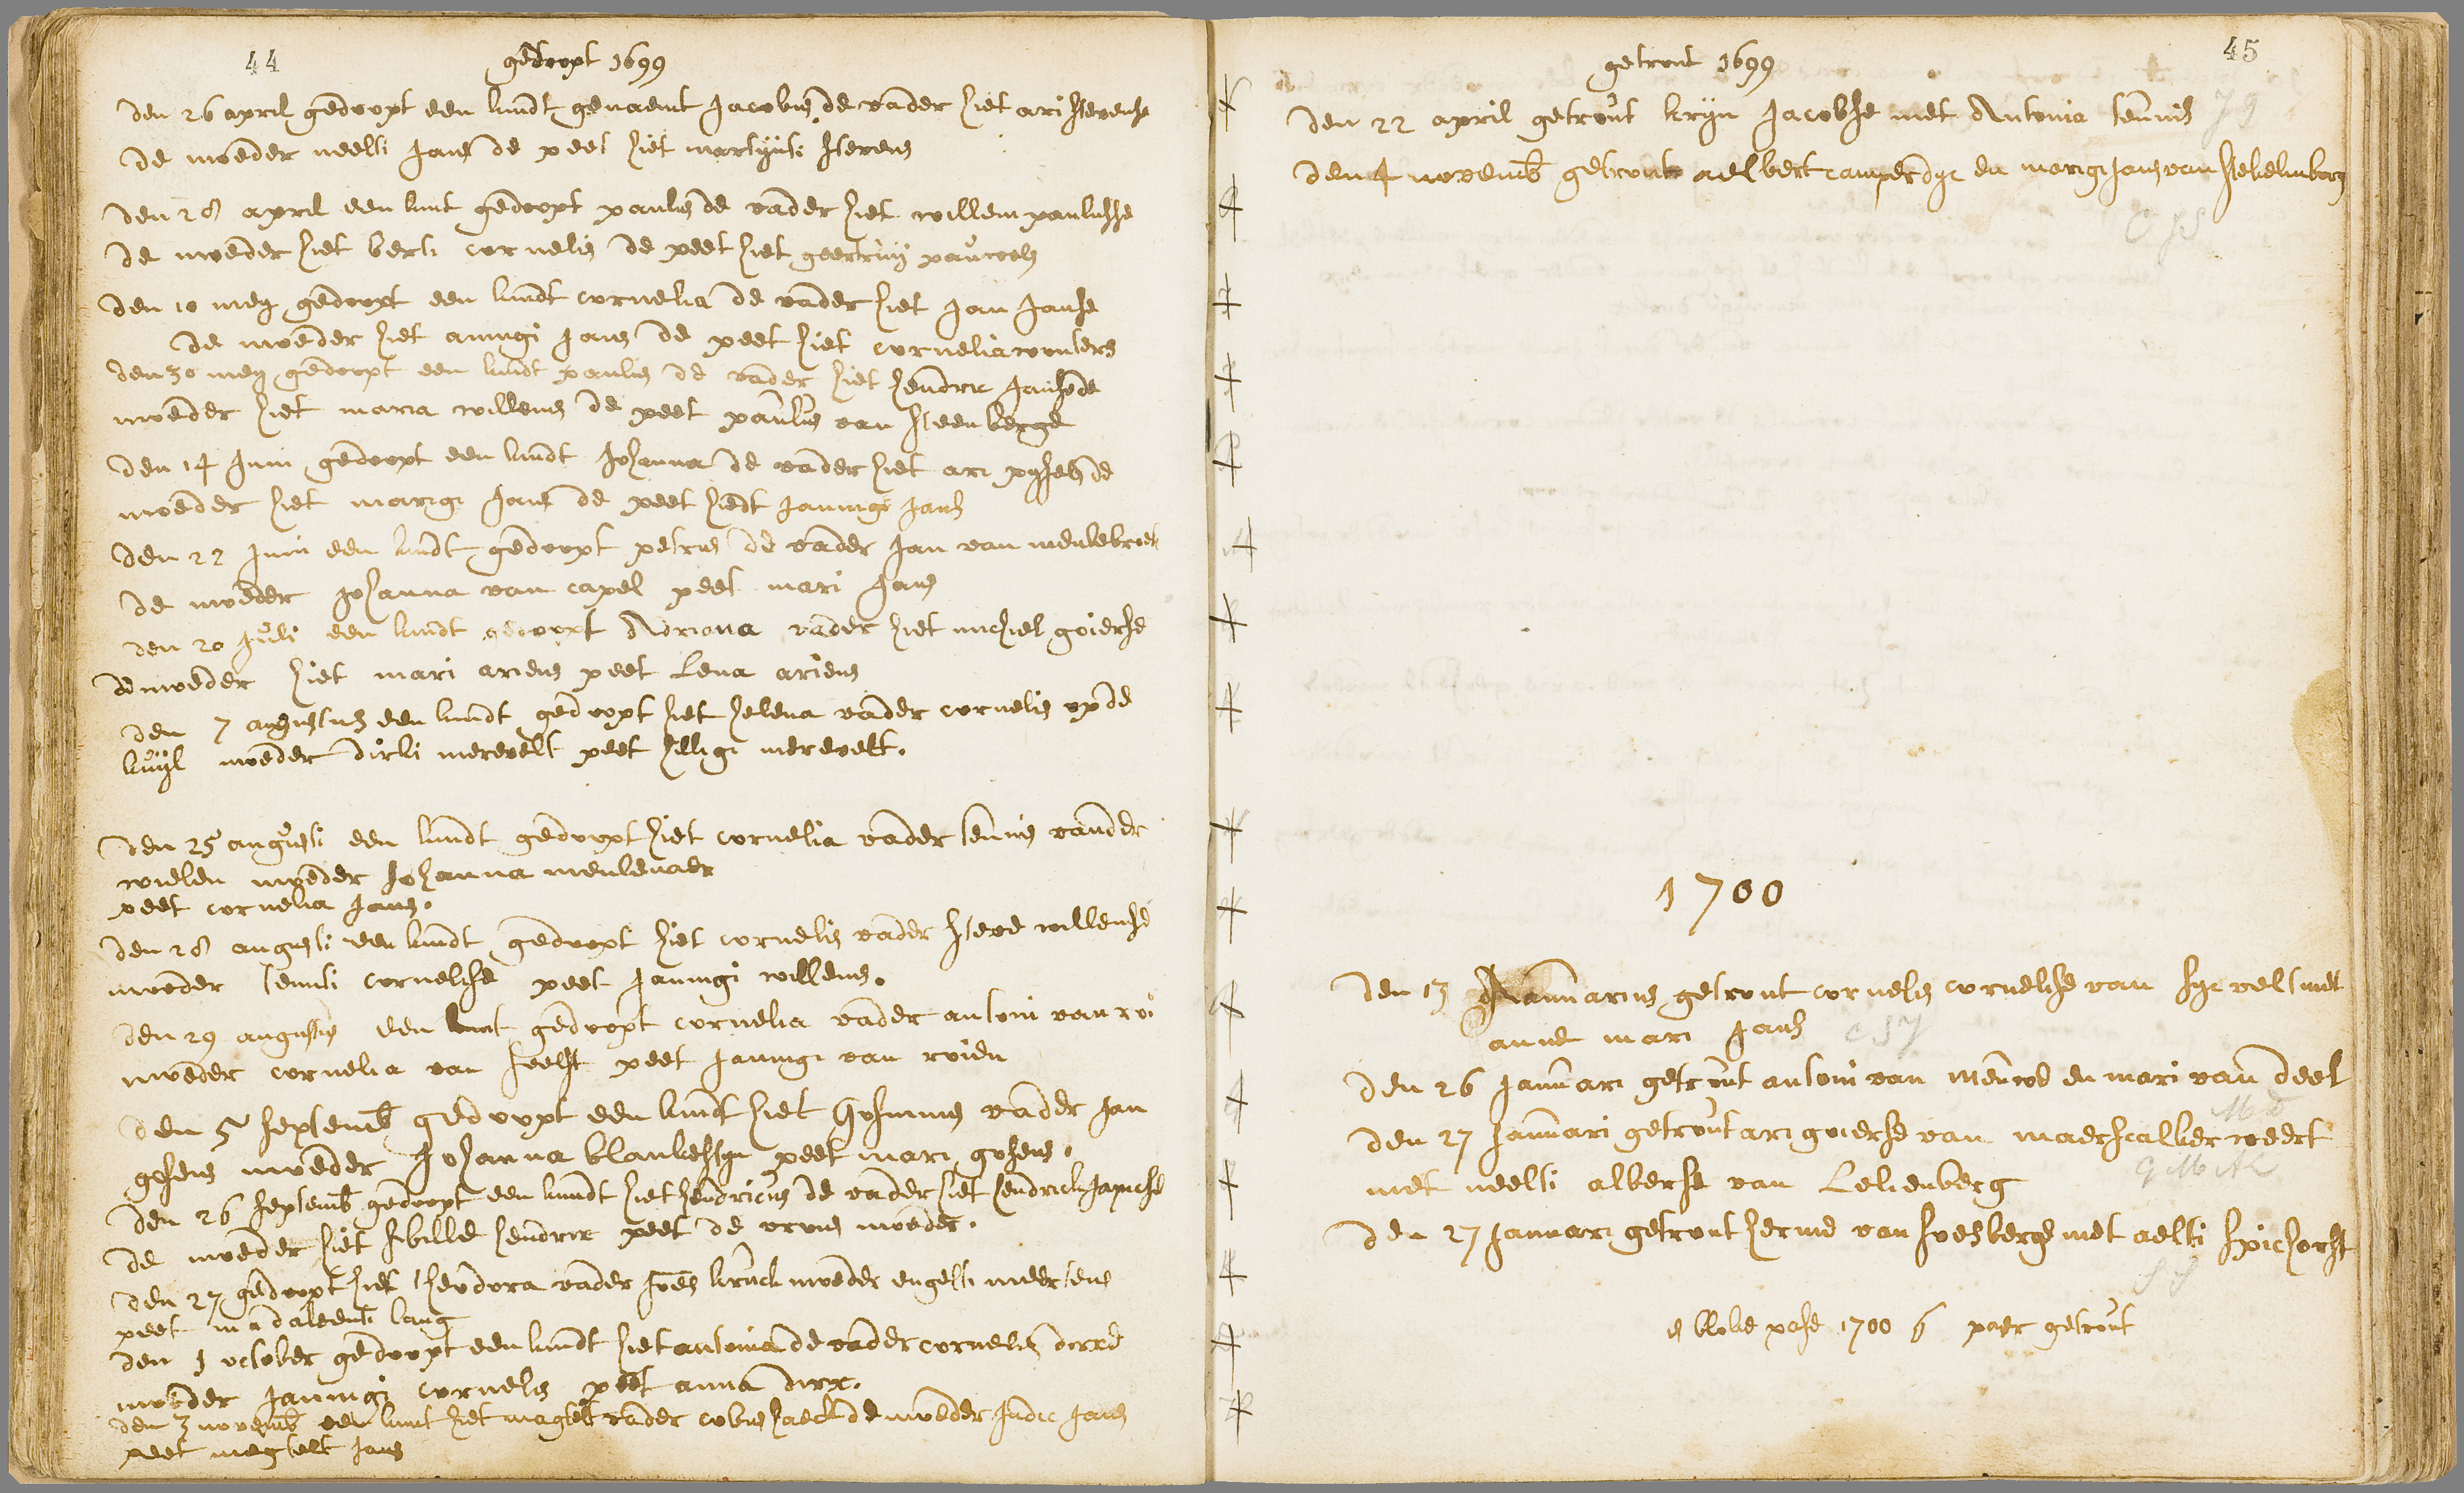 44
gedoopt 1699
den 26 april gedoopt een kindt genaemt Jacobus de vader hiet ari stevense
de moeder neelti Jans de peet hiet martijnti stevens
den 28 april een kint gedoopt paulus de vader hiet willem paulusse
de moeder hiet berti cornelis de peet hiet geertruij pauwels
den 10 mey gedoopt een kindt cornelia de vader hiet Jan Janse
de moeder hiet annigi Jans de peet hiet cornelia wouters
den 30 mey gedoopt een kindt paulus de vader hiet hendric Janse de
moeder hiet maria willems de peet paulus van steenberge
den 14 Juni gedoopt een kindt Johanna de vader hiet ari gysels de
moeder hiet marigi Jans de peet hiedt Jannigi Jans
den 22 Juni een kindt gedoopt petrus de vader Jan van meulebroek
de moeder Johanna van capel peet mari Jans
den 20 Juli een kindt gedoopt Adriana vader hiet michiel goierse
de moeder hiet mari ariens peet Lena ariens
den 7 augustus een kindt gedoopt hiet helena vader cornelis op de
kuijl moeder dirkti merevelt peet hilligi merevelt.
den 25 augusti een kindt gedoopt hiet cornelia vader teunis vander
wielen moeder Johanna meulenaer
peet cornelia Jans.
den 28 augusti een kindt gedoopt hiet cornelis vader steve willemse
moeder teunti cornelisse peet Jannigi willems.
den 29 augustus een kint gedoopt cornelia vader antoni van roi
moeder cornelia van soelst peet Jannigi van roien
den 5 septemb gedoopt een kindt hiet Gosuinus vader Jan
gosens moeder Johanna blankestyn peet mari gosens.
den 26 septemb gedoopt een kindt hiet hendricus de vader hiet hendrick Japickse
de moeder hiet sibille hendrix peet de vrous moeder.
den 27 gedoopt hiet theodora vader Joes kruck moeder engelti meertens
peet madaleenti lang
den 1 october gedoopt een kindt hiet antonia de vader cornelis dirxe
moeder Jannigi cornelis peet anna dirx.
den 3 novemb een kint hiet magtelt vader cobus haeck de moeder Judic Jans
peet magtelt Jans
45
getrout 1699
den 22 april getrout kryn Jacobse met Antonia teunis
den 4 novemb getrout aelbert camperdyc en marigi Jans van stekelenborg
1700
den 13 Januarius getrout cornelis cornelisse van syc velt met
anne mari Jans
den 26 Januari getrout antoni van Meuwe en mari van deel
den 27 Januari getrout ari goierse van maersealkerweert
met neelti alberse van Lelienberg
den 27 Januari getrout herme van soesberge met aelti spichorst
1700 6 paer getrout